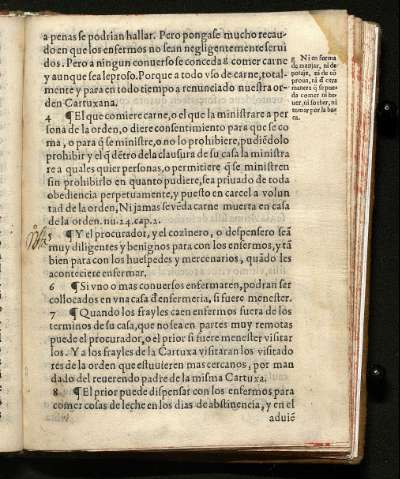 a penas se podrian hallar. Pero pongase mucho recau-
do en que los enfermos no sean negligentemente serui
dos. Pero a ningun conuerso se conceda q̃ comer carne
y aunque sea leproso. Porque a todo vso de carne, total-
mente y para en todo tiempo a renunciado nuestra or-
den Cartuxana.
4 ¶ El que comiere carne, o el que la ministrare a per
sona de la orden, o diere consentimiento para que se co
ma, o para q̃ se ministre, o no lo prohibiere, pudiẽdolo
prohibir y el q̃ dẽtro dela clausura de su casa la ministra
re a quales quier personas, o permitiere q̃ se ministren
sin prohibirlo en quanto pudiere, sea priuado de toda
obediencia perpetuamente, y puesto en carcel a volun
tad de la orden, Ni jamas se veda carne muerta en casa
de la orden. nu. 24. cap. 2.
5 ¶ Y el procurador, y el cozinero, o despensero seã
muy diligentes y benignos para con los enfermos, y tã
bien para con los huespedes y mercenarios, quãdo les
aconteciere enfermar.
6 ¶ Si vno o mas conuersos enfermaren, podran ser
collocados en vna casa d̃ enfermeria, si fuere menester.
7 ¶ Quando los frayles caen enfermos fuera de los
terminos de su casa, que no sea en partes muy remotas
puede el procurador, o el prior si fuere menester visitar
los. Y a los frayles de la Cartuxa visitaran los visitado
res de la orden que estuuieren mas cercanos, por man
dado del reuerendo padre de la misma Cartuxa.
8 ¶ El prior puede dispensar con los enfermos para
comer cosas de leche en los dias de abstinencia, y en el
aduiẽ
¶ Ni en forma
de manjar, ni de